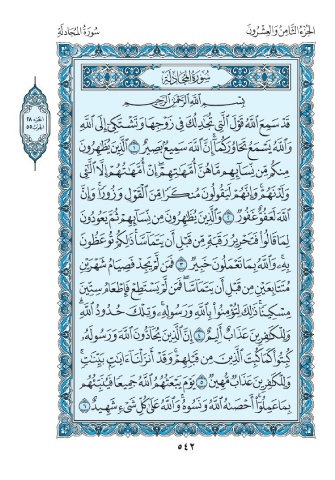 الجزء الثامن والعشرون
سورة المجادلة
سورة المجادلة
بسم الله الرحمن الرحيم
قَدْ سَمِعَ ٱللَّهُ قَوْلَ ٱلَّتِى تُجَٰدِلُكَ فِى زَوْجِهَا وَتَشْتَكِىٓ إِلَى ٱللَّهِ
وَٱللَّهُ يَسْمَعُ تَحَاوُرَكُمَآ إِنَّ ٱللَّهَ سَمِيعٌۢ بَصِيرٌ ١ ٱلَّذِينَ يُظَٰهِرُونَ
مِنكُم مِّن نِّسَآئِهِم مَّا هُنَّ أُمَّهَٰتِهِمْ إِنْ أُمَّهَٰتُهُمْ إِلَّا ٱلَّٰٓـِٔى
وَلَدْنَهُمْ وَإِنَّهُمْ لَيَقُولُونَ مُنكَرًا مِّنَ ٱلْقَوْلِ وَزُورًا وَإِنَّ
ٱللَّهَ لَعَفُوٌّ غَفُورٌ ٢ وَٱلَّذِينَ يُظَٰهِرُونَ مِن نِّسَآئِهِمْ ثُمَّ يَعُودُونَ
لِمَا قَالُوا۟ فَتَحْرِيرُ رَقَبَةٍ مِّن قَبْلِ أَن يَتَمَآسَّا ذَٰلِكُمْ تُوعَظُونَ
بِهِۦ وَٱللَّهُ بِمَا تَعْمَلُونَ خَبِيرٌ ٣ فَمَن لَّمْ يَجِدْ فَصِيَامُ شَهْرَيْنِ
مُتَتَابِعَيْنِ مِن قَبْلِ أَن يَتَمَآسَّا فَمَن لَّمْ يَسْتَطِعْ فَإِطْعَامُ سِتِّينَ
مِسْكِينًا ذَٰلِكَ لِتُؤْمِنُوا۟ بِٱللَّهِ وَرَسُولِهِۦ وَتِلْكَ حُدُودُ ٱللَّهِ
وَلِلْكَٰفِرِينَ عَذَابٌ أَلِيمٌ ٤ إِنَّ ٱلَّذِينَ يُحَآدُّونَ ٱللَّهَ وَرَسُولَهُۥ
كُبِتُوا۟ كَمَا كُبِتَ ٱلَّذِينَ مِن قَبْلِهِمْ وَقَدْ أَنزَلْنَآ ءَايَٰتٍۭ بَيِّنَٰتٍ
وَلِلْكَٰفِرِينَ عَذَابٌ مُّهِينٌ ٥ يَوْمَ يَبْعَثُهُمُ ٱللَّهُ جَمِيعًا فَيُنَبِّئُهُم
بِمَا عَمِلُوٓا۟ أَحْصَىٰهُ ٱللَّهُ وَنَسُوهُ وَٱللَّهُ عَلَىٰ كُلِّ شَىْءٍ شَهِيدٌ ٦
الجزء ٢٨
الحزب ٥٥
٥٤٢